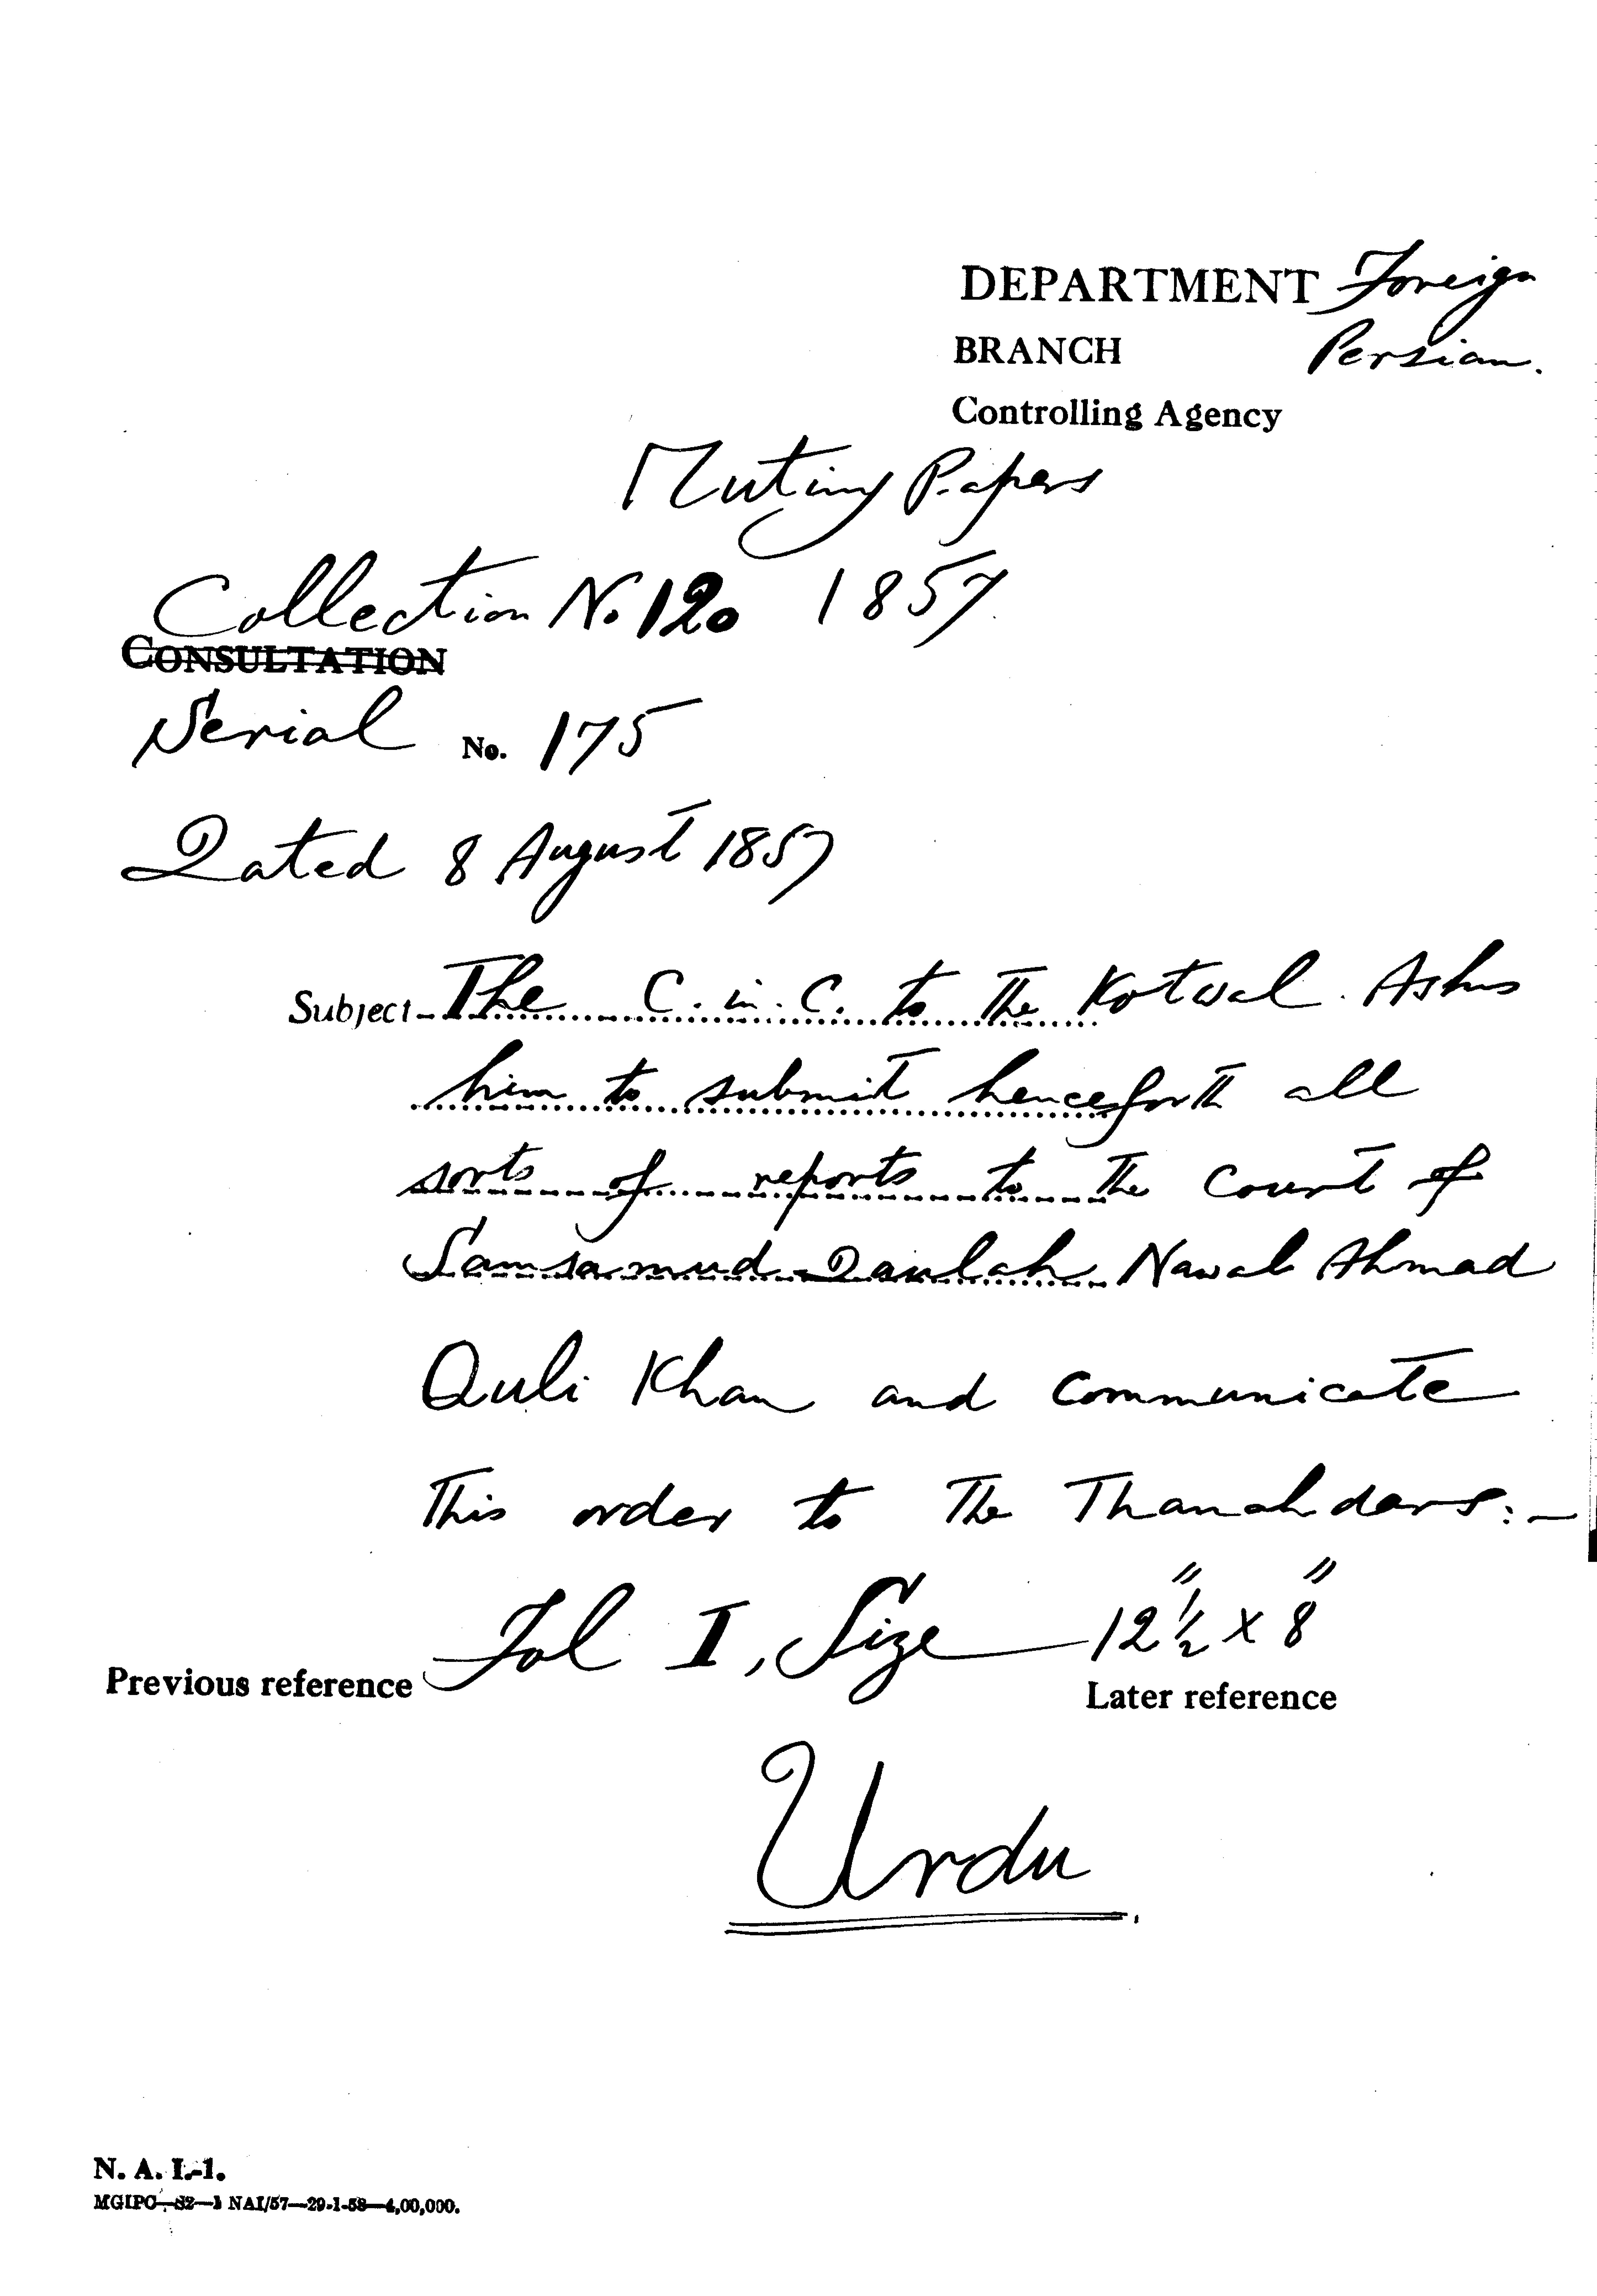 DEPARTMENT Foreign
BRANCH Persian.
Controlling Agency
Mutiny Papers
Collection No 120 1857
CONSULTATION
Serial No. 175
Dated 8 August 1857
Subject The C. in. C. to the Kotwal. Asks
him to submit henceforth all
sorts of reports to the Court of
Samsamud Daulah Nawab Ahmad
Quli Khan and communicate
This order to the Thanahdars:-
Fol I, Size 12½" x 8"
Previous reference
Later reference
Urdu
N. A. I.-1.
MGIPC—S2—1 NAI/57—29-1-58—4,00,000.